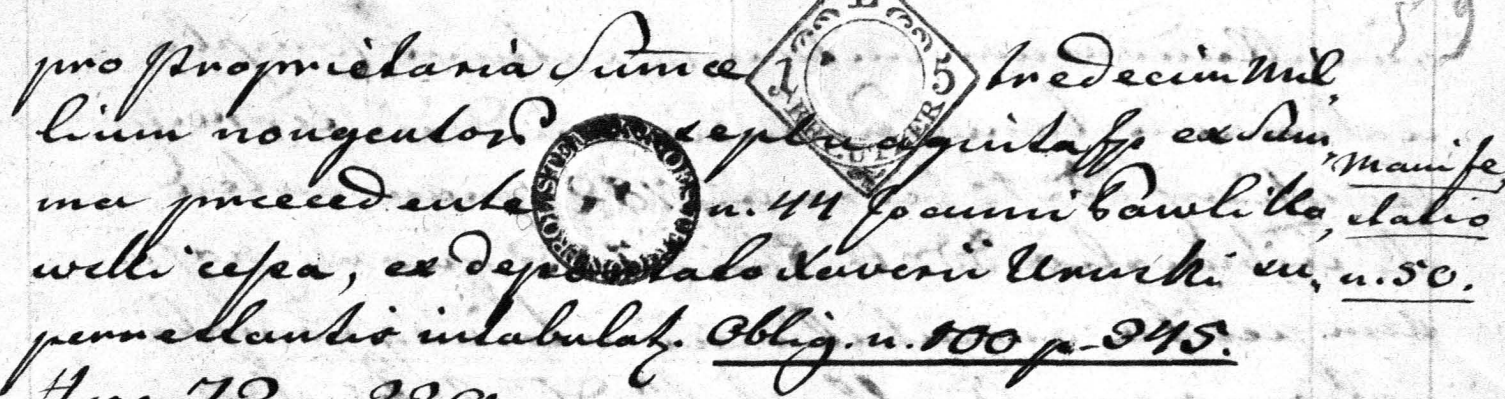 pro Proprietaria Summæ tredecim Mil,
lium nongentor septuaginta fp ex Sum,
ma præcedente n. 44 Joanni Pawliko,
wski cessa, ex deportato Xaverii Uruski su,
perrestantis intabulat. Oblig. n. 100 p. 345.
manife,
statio
n. 50.
15
59